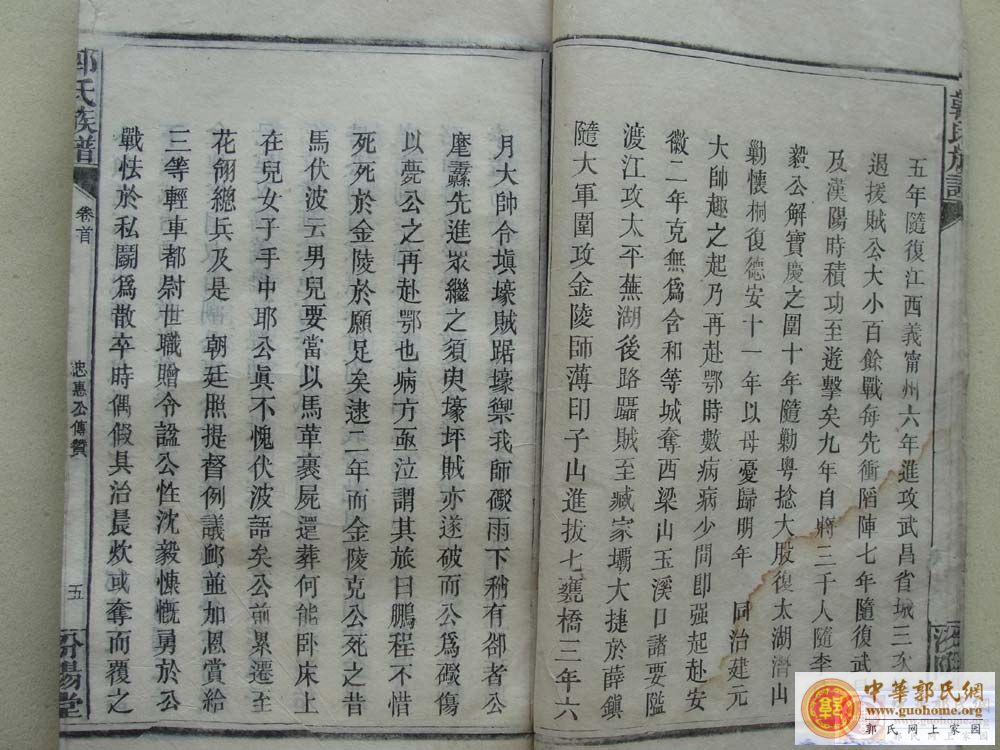 郭氏族譜
五年隨復江西義甯州六年進攻武昌省城三次
退援賊公大小百餘戰每先衝陷陣七年隨復武
及漢陽時積功至遊擊矣九年自將三千人隨李
毅公解寶慶之圍十年隨勦粵捻大股復太湖潛山
勦懷桐復德安十一年以母憂歸明年 同治建元
大帥趣之起乃再赴鄂時數病病少間卽强起赴安
徽二年克無爲含和等城奪西梁山玉溪口諸要隘
渡江攻太平蕪湖後路躡賊至臧家壩大捷於薛鎭
隨大軍圍攻金陵師薄印子山進拔七甕橋三年六
月大帥令塡壕賊踞壕禦我師礮雨下稍有卻者公
麾纛先進眾繼之須臾壕坪賊亦遂破而公爲礮傷
以薨公之再赴鄂也病方亟泣謂其旅曰鵬程不惜
死死於金陵於願足矣逮二年而金陵克公死之昔
馬伏波云男兒要當以馬革裹屍還葬何能卧床上
在兒女子手中耶公眞不愧伏波語矣公前累遷至
花翎總兵及是 朝廷照提督例議卹並加恩賞給
三等輕車都尉世職贈令諡公性沈毅慷慨勇於公
戰怯於私鬬爲散卒時偶假具治晨炊或奪而覆之
郭氏族譜
卷首
忠惠公傳贊
五
汾陽堂
中華郭氏網
www.guohome.org
郭氏網上家園